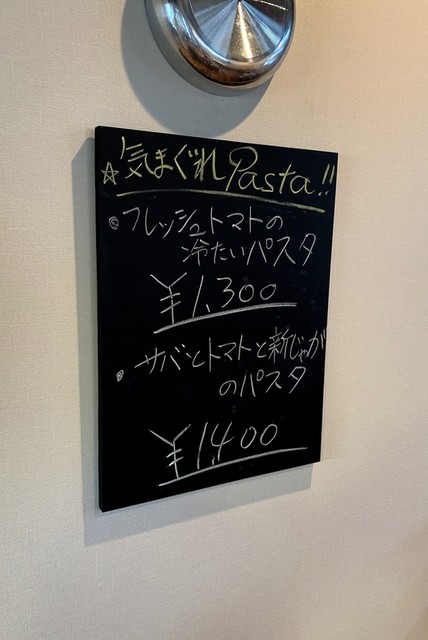 ☆気まぐれPasta!!
◎フレッシュトマトの
冷たいパスタ
¥1,300
・サバとトマトと新じゃが
のパスタ
¥1,400